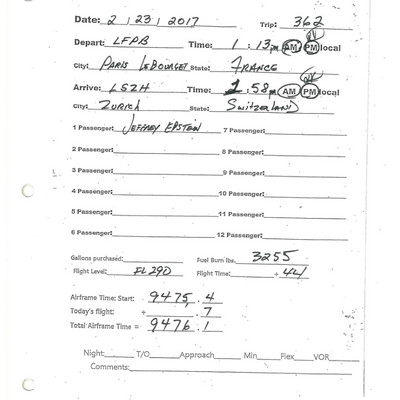 Date: 2 | 23 | 2017 Trip: 362
Depart: LFPB Time: 1 : 13pm AM PM local
City: PARIS LEBOURGET State: FRANCE
Arrive: LSZH Time: 2 : 58pm AM PM local
City: ZURICH State: SWITZERLAND
1 Passenger: JEFFREY EPSTEIN 7 Passenger:
2 Passenger: 8 Passenger:
3 Passenger: 9 Passenger:
4 Passenger: 10 Passenger:
5 Passenger: 11 Passenger:
6 Passenger: 12 Passenger:
Gallons purchased: Fuel Burn lbs. 3255
Flight Level: FL290 Flight Time: + 44
Airframe Time: Start: 9475 . 4
Today's flight: + . 7
Total Airframe Time = 9476 . 1
Night: T/O Approach Min Flex VOR
Comments: